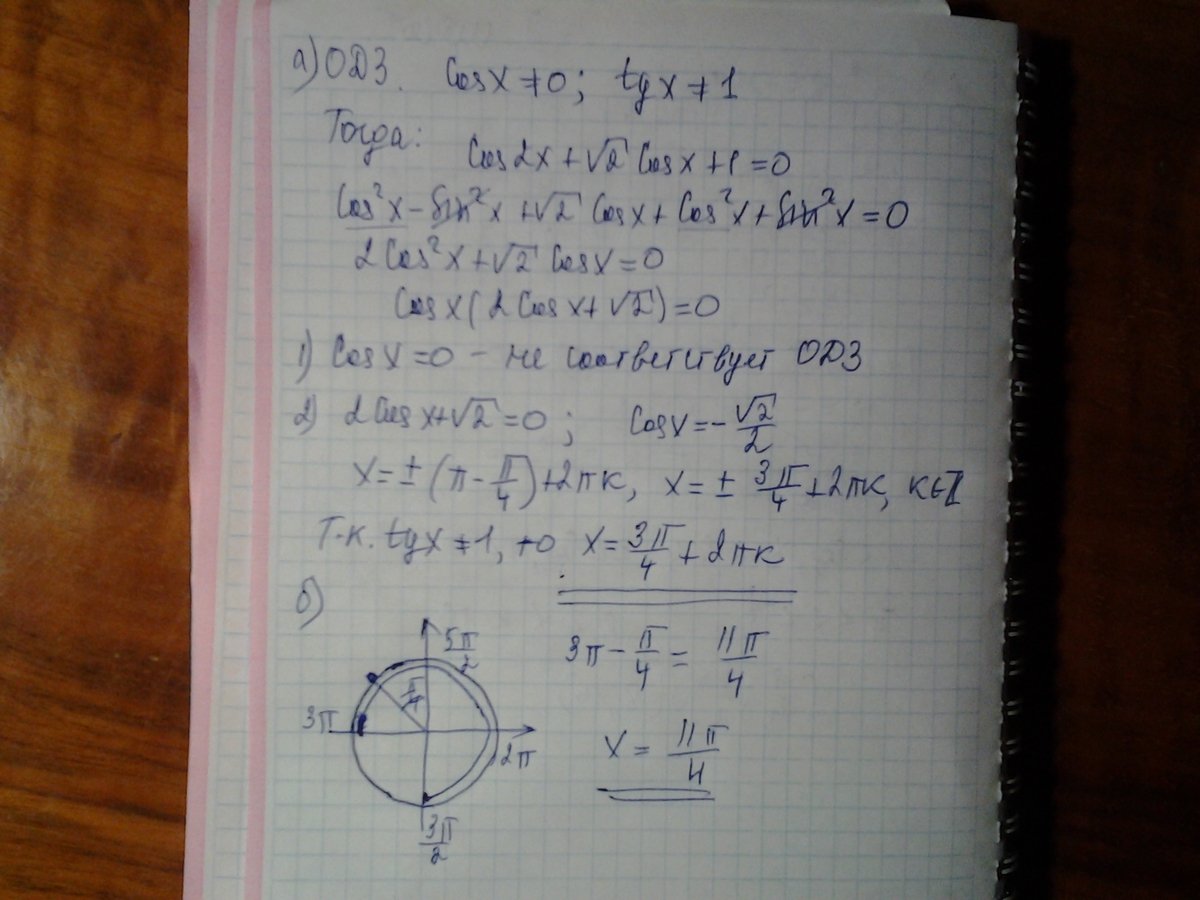 а) ОДЗ. Cos x ≠ 0; tg x ≠ 1
Тогда:
Cos 2x + √2 Cos x + 1 = 0
Cos²x - Sin²x + √2 Cos x + Cos²x + Sin²x = 0
2 Cos²x + √2 Cos x = 0
Cos x (2 Cos x + √2) = 0
1) Cos x = 0 - не соответствует ОДЗ
2) 2 Cos x + √2 = 0; Cos x = -√2/2
x = ± (π - π/4) + 2πк, x = ± 3π/4 + 2πк, к∈Z
Т.к. tg x ≠ 1, то x = 3π/4 + 2πк
б)
5π/2
π/4
3π
2π
3π/2
3π - π/4 = 11π/4
x = 11π/4